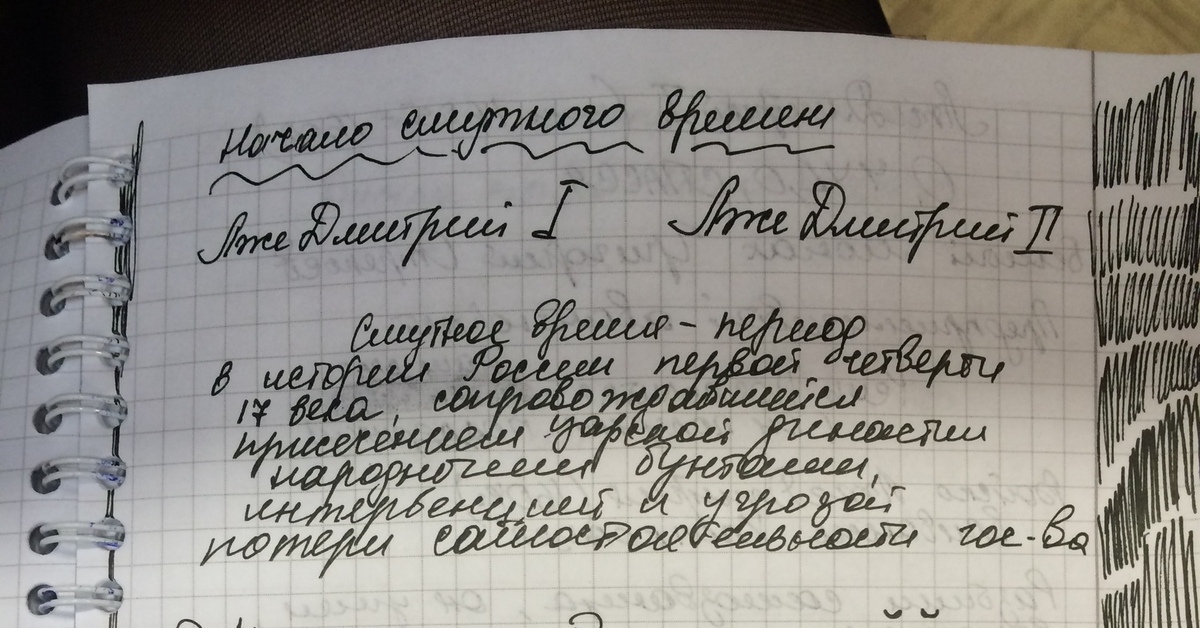 Начало смутного времени
Лже Дмитрий I Лже Дмитрий II
Смутное время - период
в истории России первой четверти
17 века, сопровождавшийся
присечением царской династии
народными бунтами,
интервенцией и угрозой
потери самостоятельности гос-ва